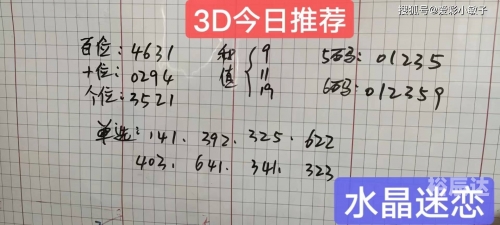 搜狐号@爱彩小敏子
3D今日推荐
百位:4631
十位:0294
个位:3521
和值 9
11
19
5码:01235
6码:012359
单选:141. 392. 325. 622
403. 641. 341. 323
裕辰达
水晶迷恋